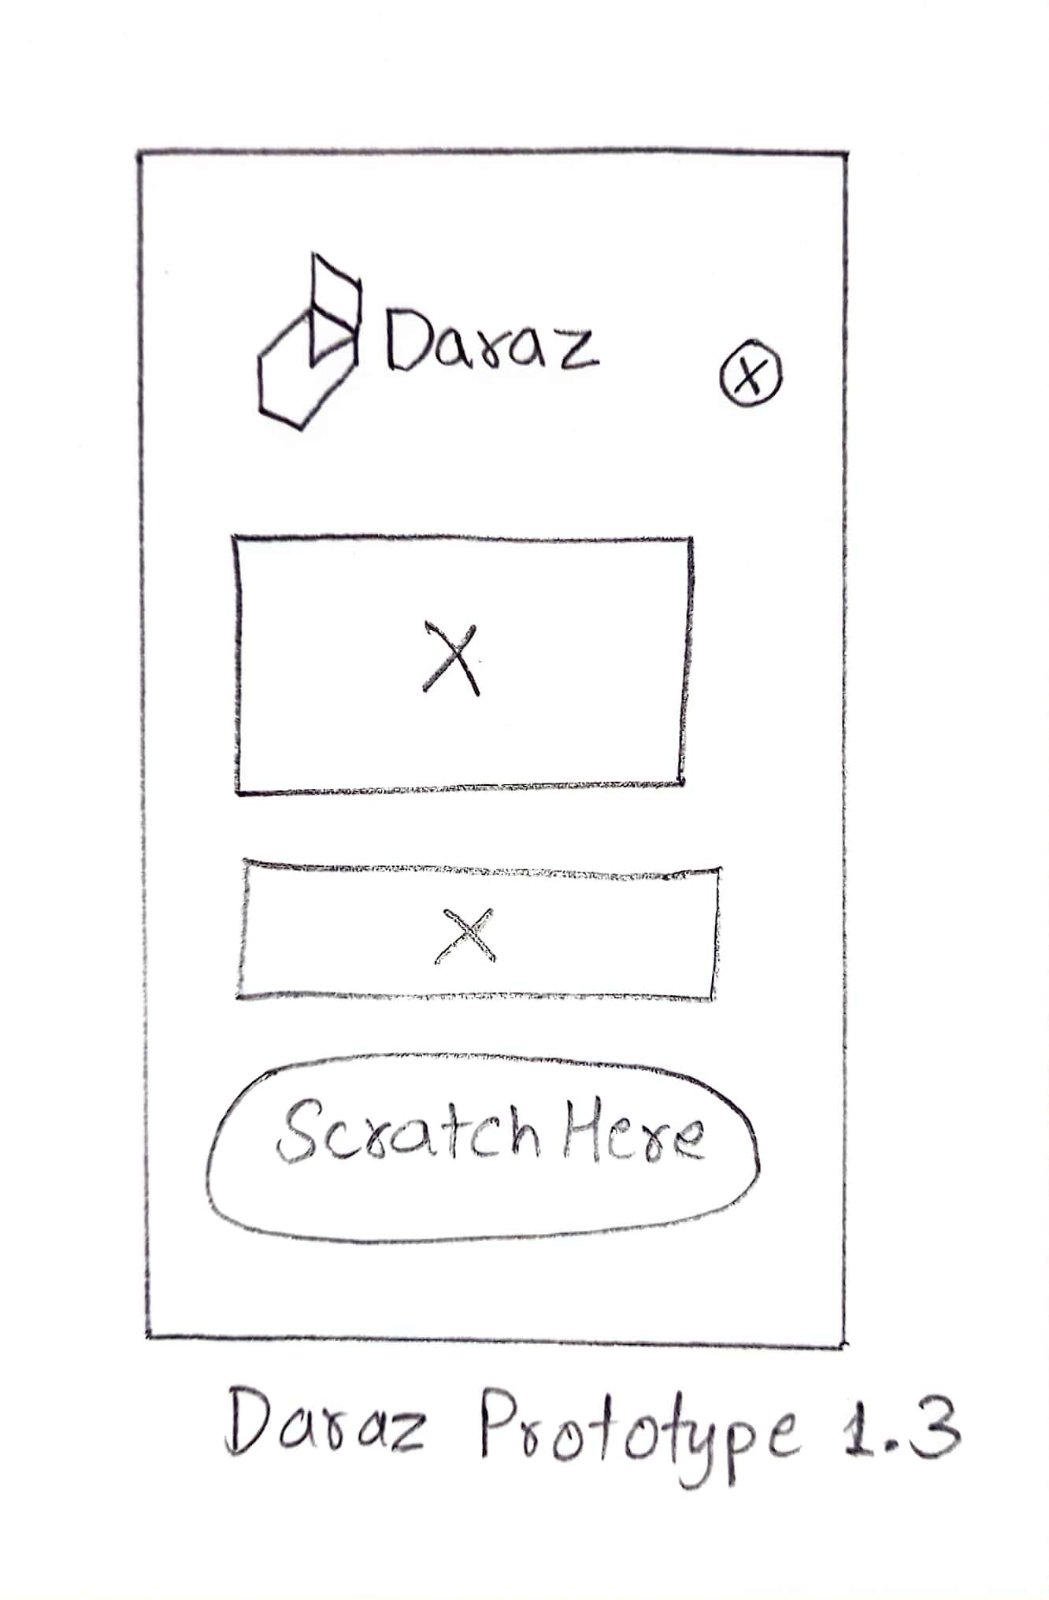 Daraz
X
X
X
Scratch Here
Daraz Prototype 1.3